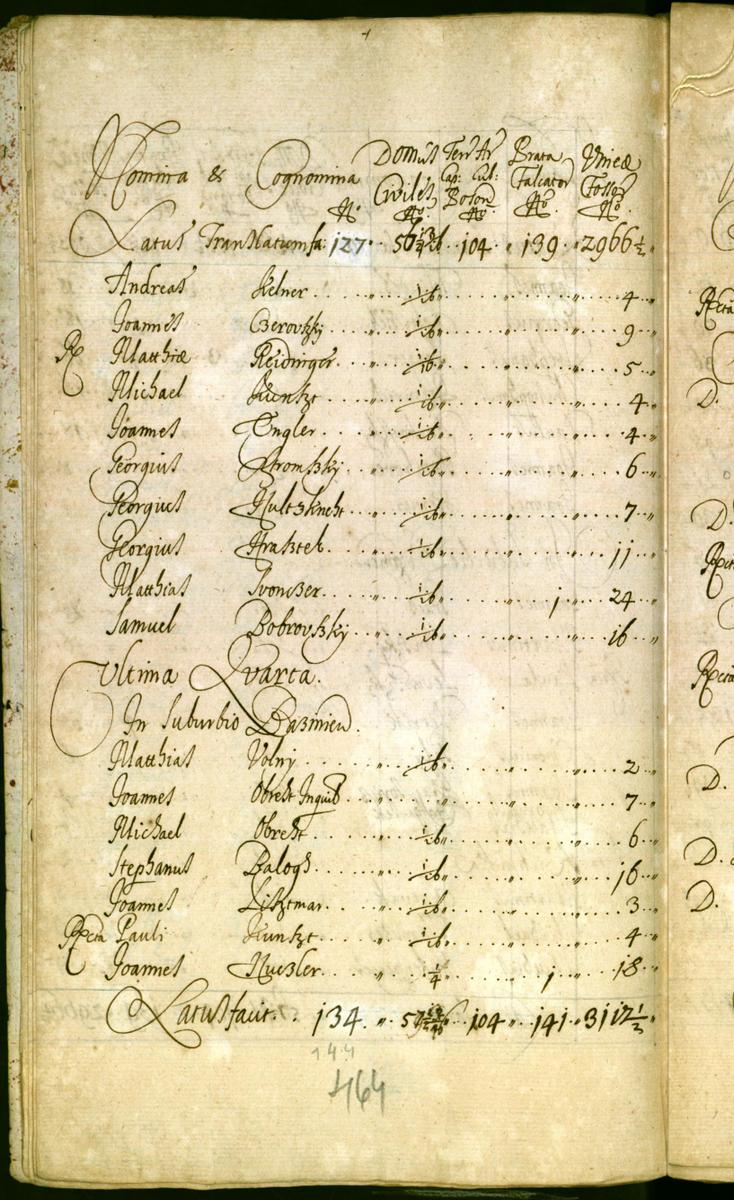 Nomina & Cognomina Domus Civiles No. Terr Ar Cap. Cul: Boson No. Prata Falcator No. Vineæ Fossor No.
No.
Latus Translatum fa: 127 " 104 " 139 " 2966 1/2 "
Andreas Kelner " 1/16 " " " 4 "
Joannes Cserovszky " 1/16 " " " 9 "
Rx Matthiæ Reidninger " 1/16 " " " 5 "
Michael Kuntzt " 1/16 " " " 4 "
Joannes Engler " 1/16 " " " 4 "
Georgius " 1/16 " " " 6 "
Georgius Hultzknecht " 1/16 " " " 7 "
Georgius " 1/16 " " " 11 "
Matthias Ivoncser " 1/16 " 1 " 24 "
Samuel Bobrovszky " 1/16 " " " 16 "
Ultima Quarta.
In Suburbio Bazinien.
Matthias Volny " 1/16 " " " 2 "
Joannes Obreht Inquil " " " " 7 "
Michael Obreht " 1/16 " " " 6 "
Stephanus Balogh " 1/16 " " " 16 "
Joannes Lisztmar " 1/16 " " " 3 "
Rcta Pauli Kuntzt " 1/16 " " " 4 "
Joannes Nueszler " 1/4 " 1 " 18 "
Latus facit 134 " 104 " 141 " 3112 1/2 "
144
464